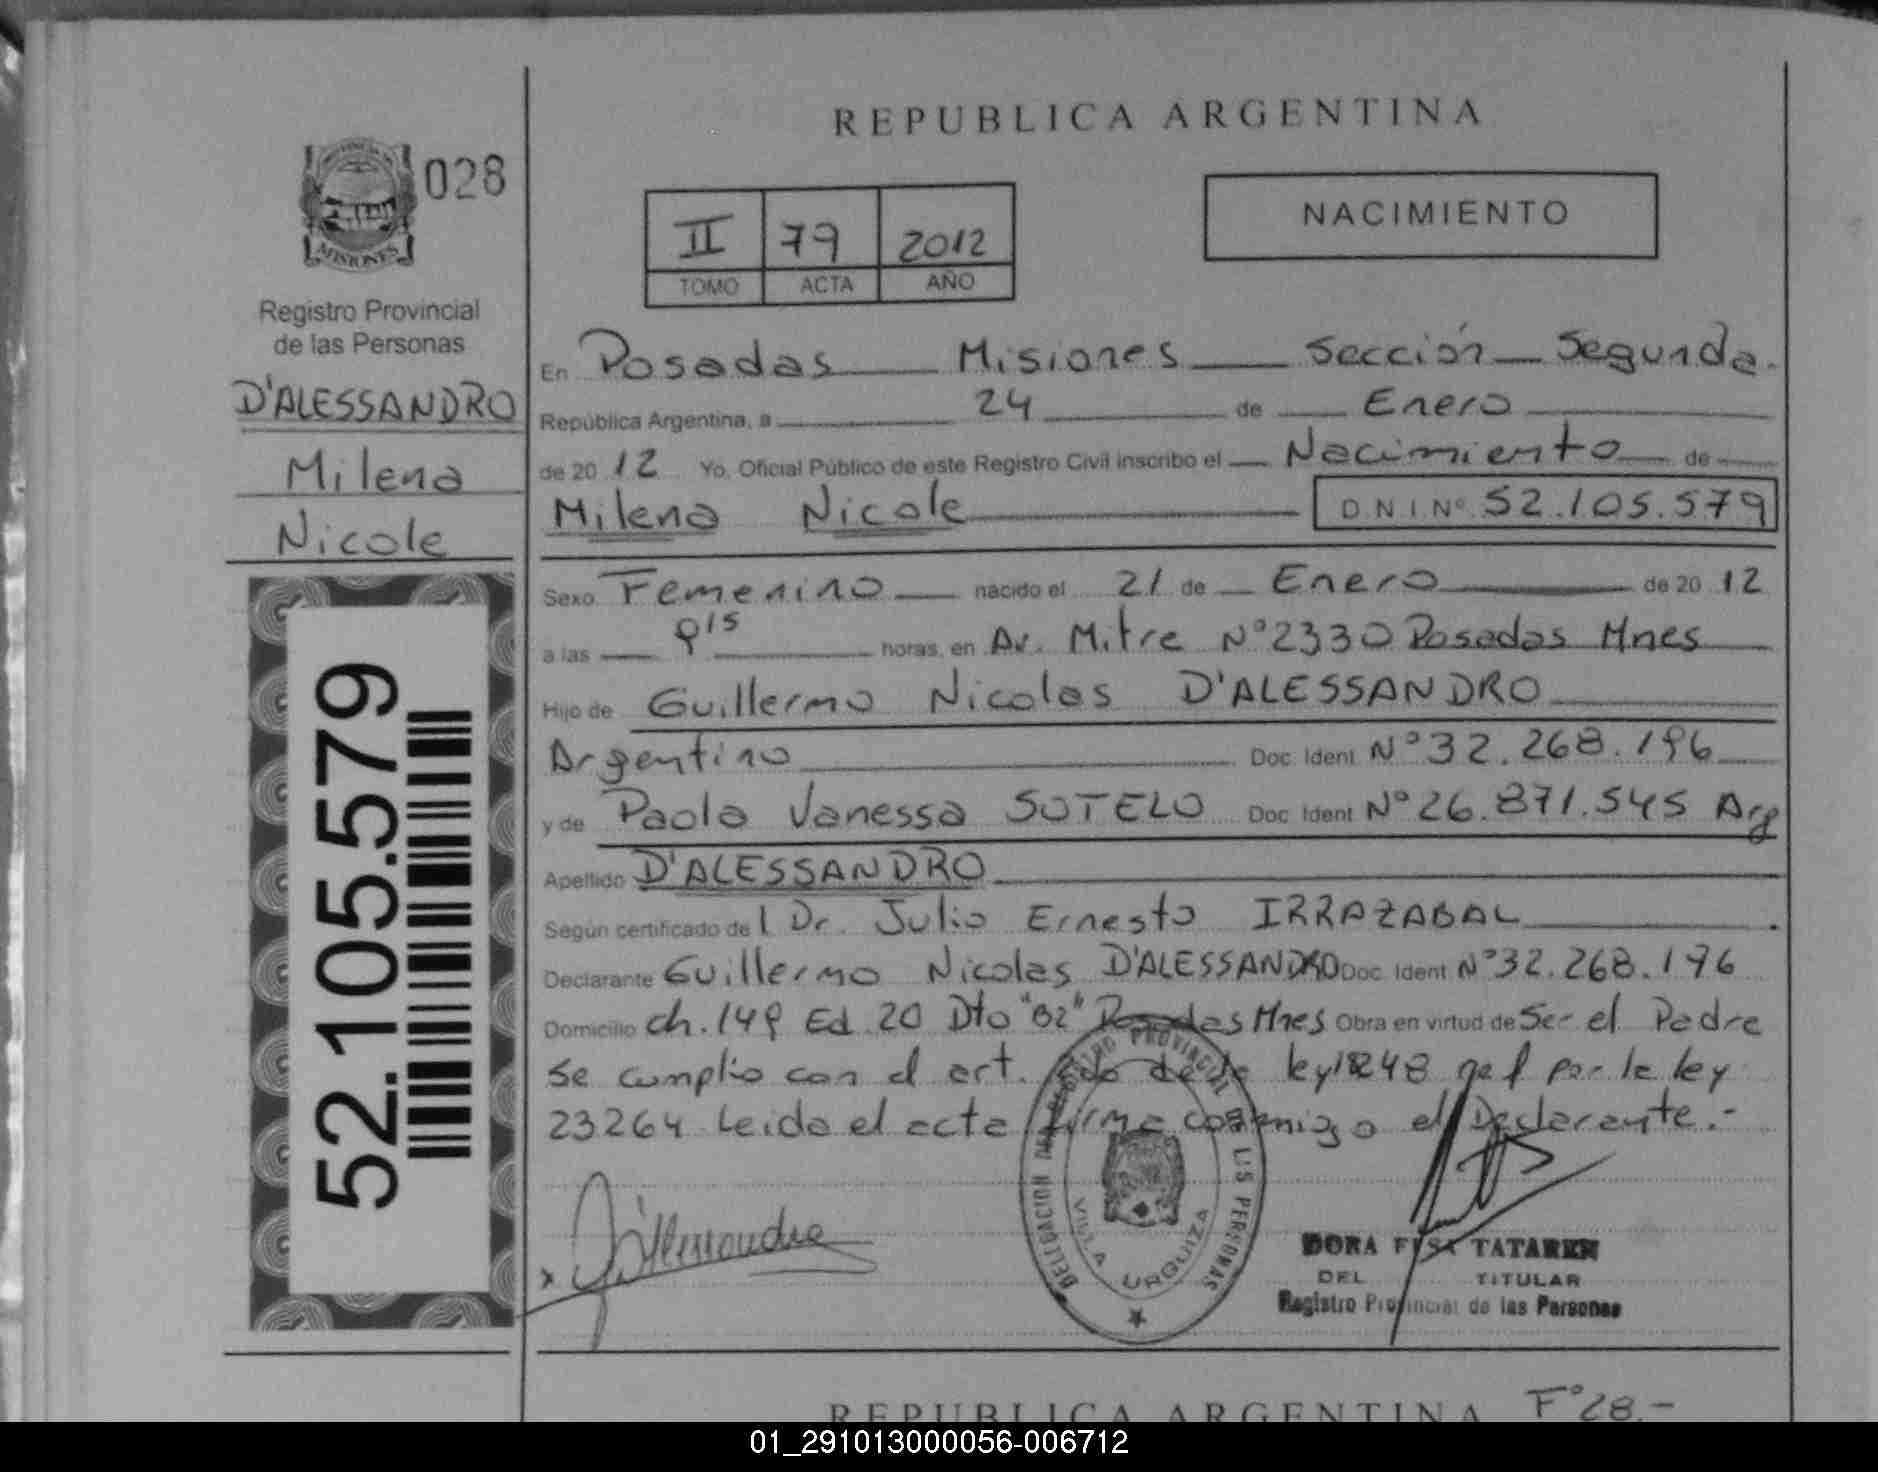 REPUBLICA ARGENTINA
028
MISIONES
Registro Provincial
de las Personas
D'ALESSANDRO
Milena
Nicole
52.105.579
II 79 2012
TOMO ACTA AÑO
NACIMIENTO
En Posadas Misiones Sección Segunda.
República Argentina, a 24 de Enero
de 20 12 Yo, Oficial Público de este Registro Civil inscribo el Nacimiento de
Milena Nicole D.N.I.Nº 52.105.579
Sexo Femenino nacido el 21 de Enero de 20 12
a las 9 15 horas, en Av. Mitre Nº 2330 Posadas Mnes
Hijo de Guillermo Nicolas D'ALESSANDRO
Argentino Doc. Ident. Nº 32.268.196
y de Paola Vanessa SOTELO Doc. Ident. Nº 26.871.545 Arg
Apellido D'ALESSANDRO
Según certificado del Dr. Julio Ernesto IRRAZABAL.
Declarante Guillermo Nicolas D'ALESSANDRO Doc. Ident. Nº 32.268.196
Domicilio ch. 149 Ed 20 Dto Posadas Mnes Obra en virtud de Ser el Padre
Se cumplio con el art. de la ley 18248 por la ley
23264 Leida el acta firma conmigo el Declarante.-
DELEGACION REGISTRO PROVINCIAL DE LAS PERSONAS
VILLA URQUIZA
x D'Alessandro
DORA TATAREN
DEL TITULAR
Registro Provincial de las Personas
REPUBLICA ARGENTINA Fº 28.-
01_291013000056-006712